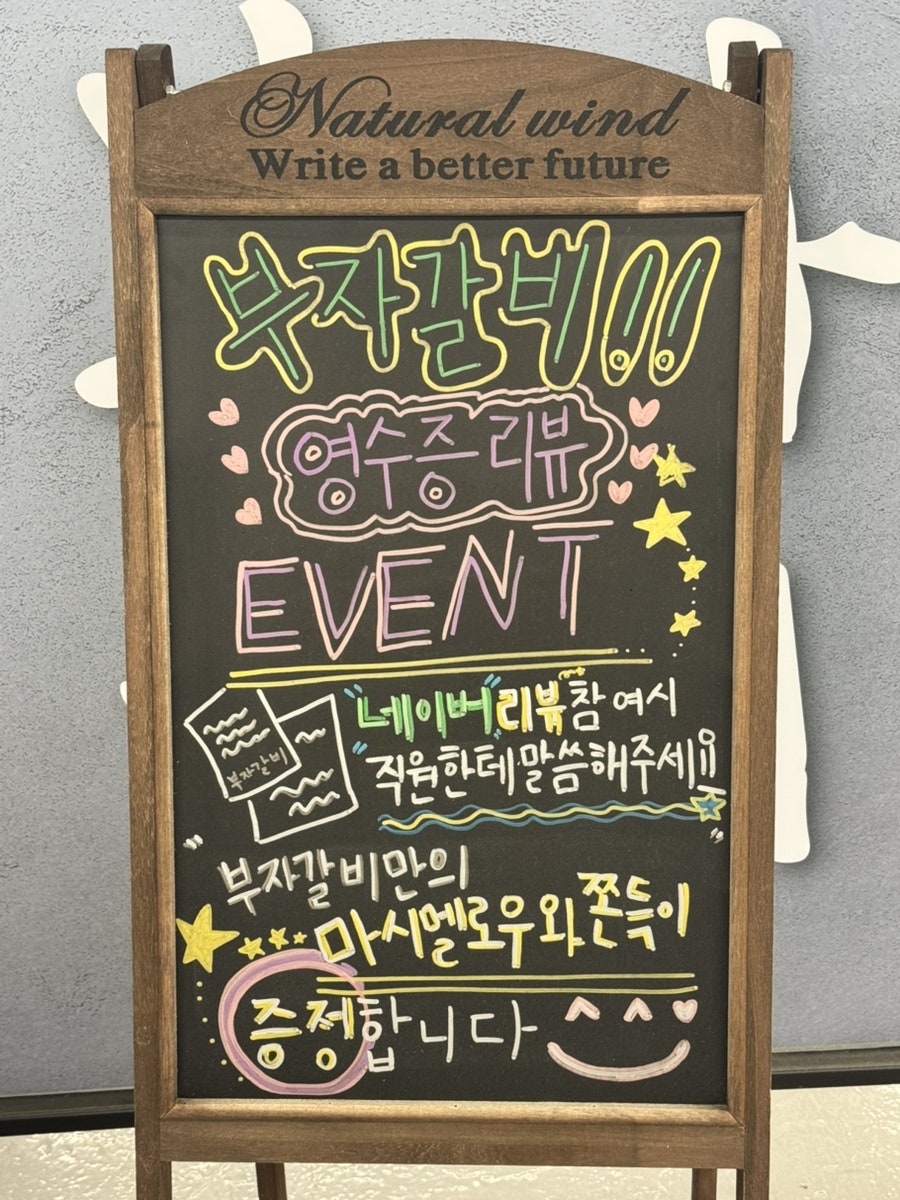 Natural wind
Write a better future
부자갈비!!
영수증 리뷰
EVENT
"네이버" 리뷰 참여시
"직원한테 말씀해주세요!!
부자갈비
"부자갈비만의
마시멜로우와 쫀득이
증정합니다